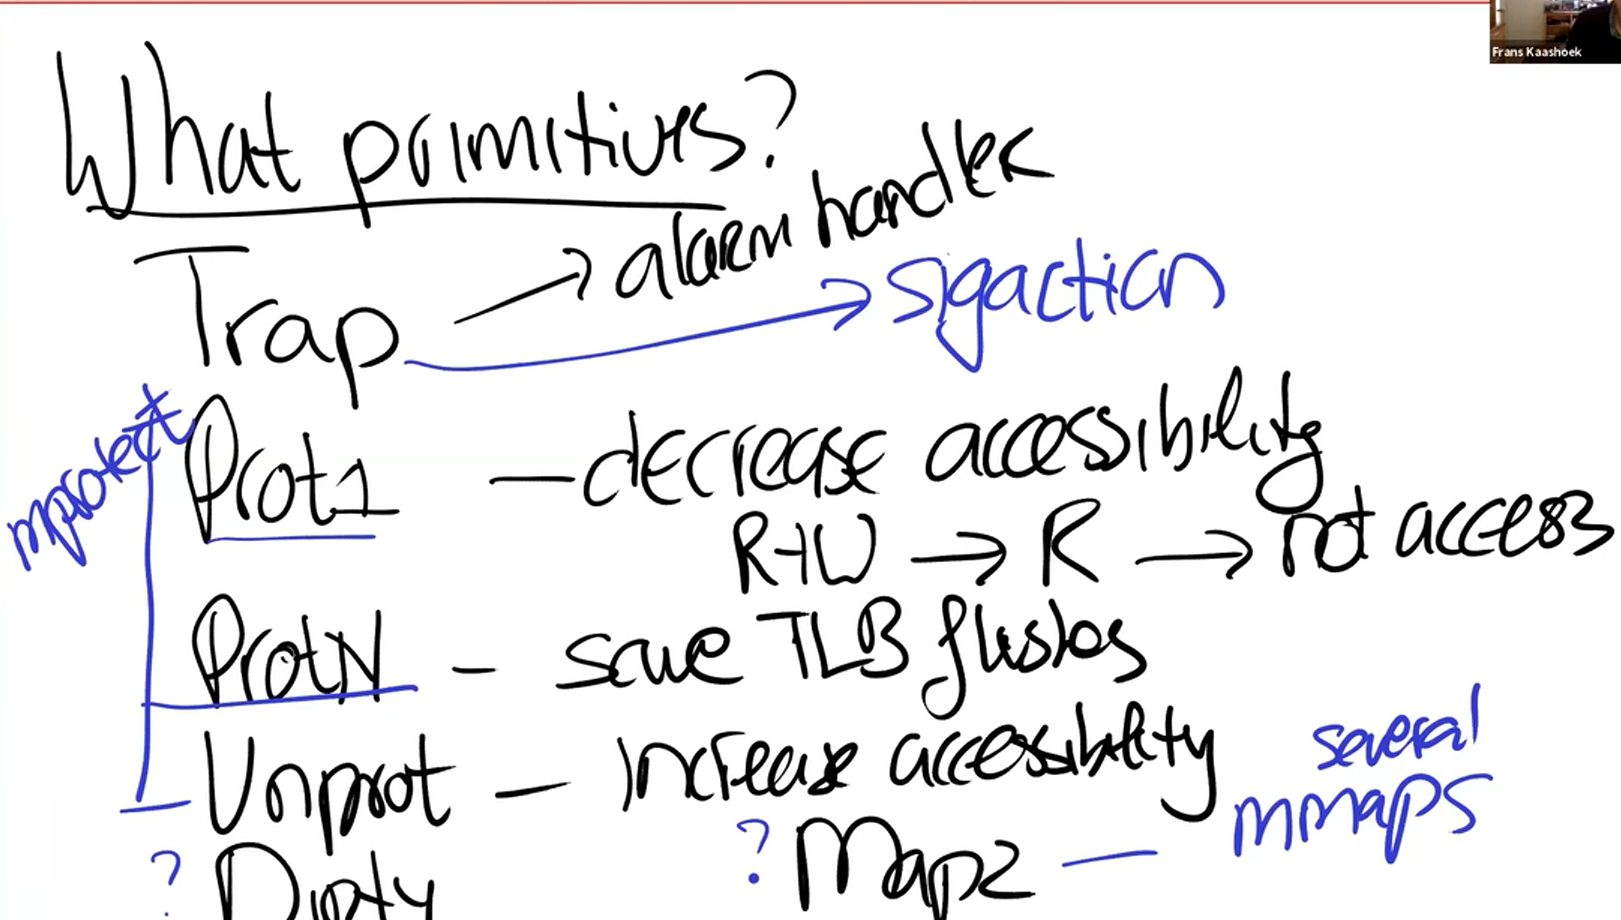 Frans Kaashoek
What primitives?
Trap → alarm handler
→ sigaction
mprotect
Prot1 — decrease accessibility
R+W → R → not access
ProtN - save TLB flushes
Unprot - increase accessibility
several
mmaps
? Dirty
? Map2 —